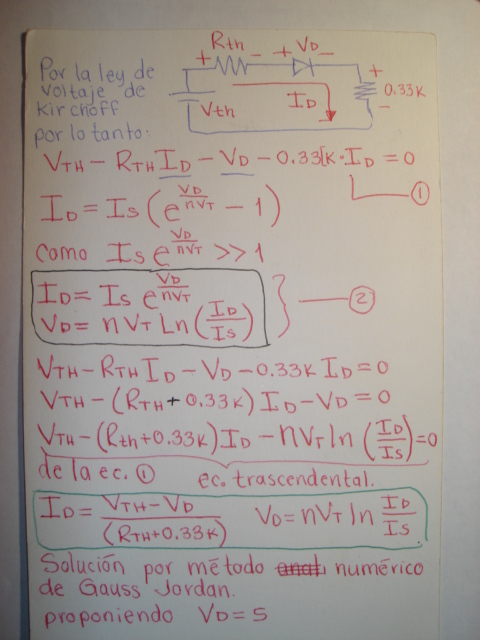 Por la ley de
voltaje de
Kirchoff
por lo tanto:
+ Rth - + VD -
Vth
ID
+
0.33K
-
VTH - RTH ID - VD - 0.33K · ID = 0
①
ID = IS (e^(VD/nVT) - 1)
como IS e^(VD/nVT) >> 1
ID = IS e^(VD/nVT)
VD = nVT Ln (ID/IS)
②
VTH - RTH ID - VD - 0.33K ID = 0
VTH - (RTH + 0.33K) ID - VD = 0
VTH - (Rth + 0.33K) ID - nVT ln (ID/IS) = 0
de la ec. ① ec. trascendental.
ID = (VTH - VD)/(RTH + 0.33K) VD = nVT ln ID/IS
Solución por método numérico
de Gauss Jordan.
proponiendo VD = 5